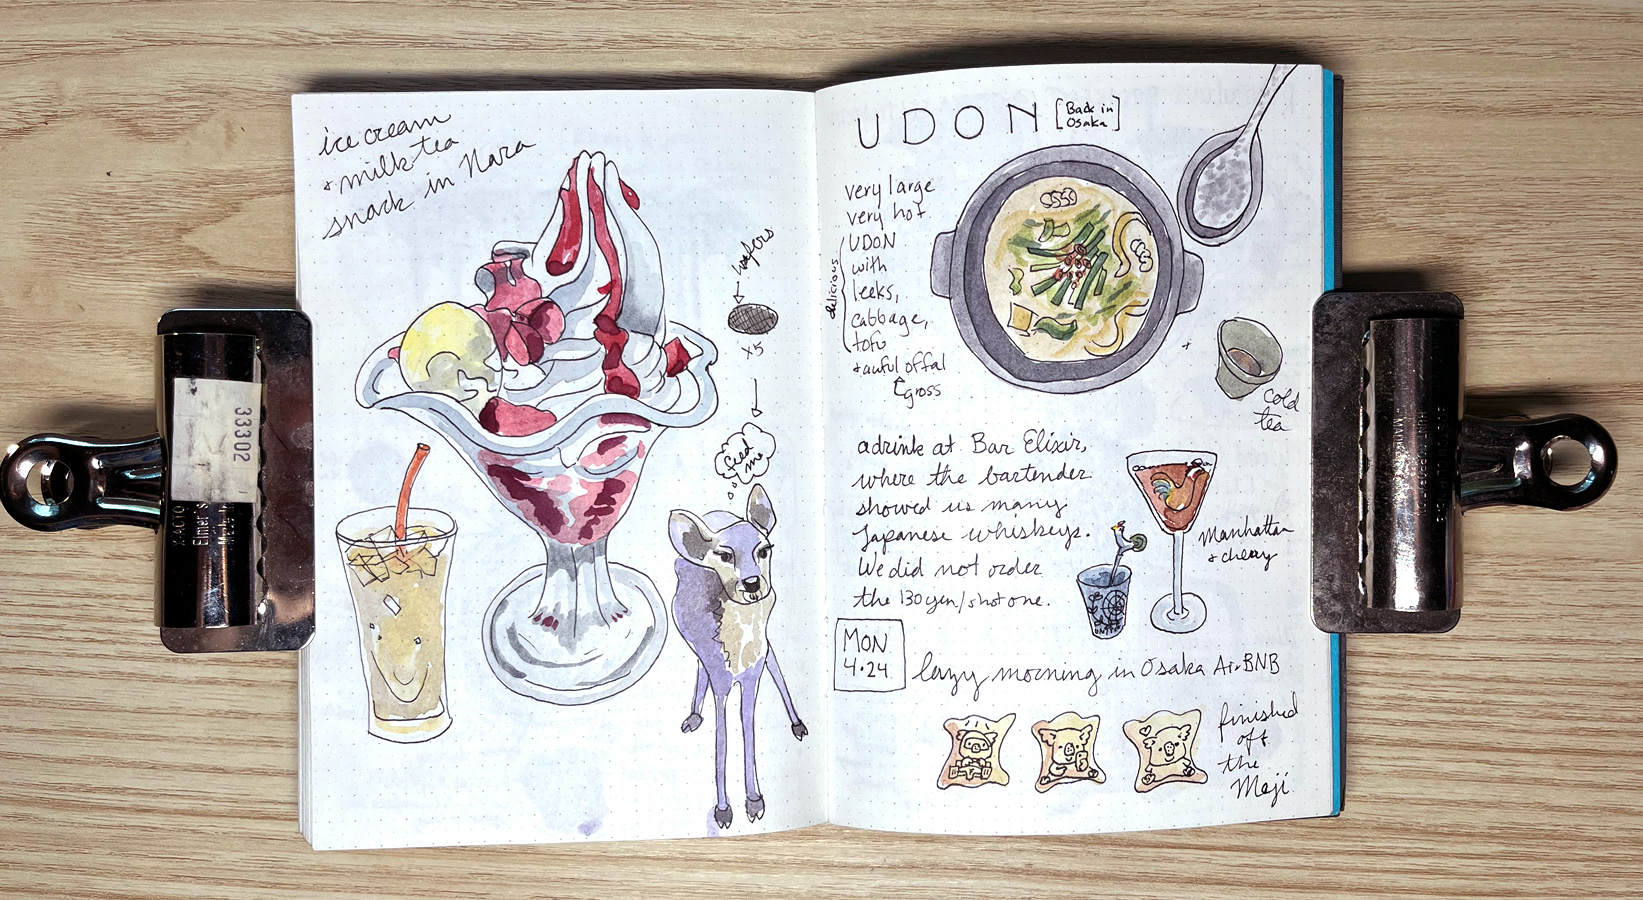 ice cream
+ milk tea
snack in Nara
wafers
x5
feed
me
UDON [Back in
Osaka]
very large
very hot
UDON
with
leeks,
cabbage,
tofu
delicious
+ awful offal
gross
cold
tea
a drink at Bar Elixir,
where the bartender
showed us many
Japanese whiskeys.
We did not order
the 130 yen/shot one.
Manhattan
+ cherry
MON
4.24
lazy morning in Osaka AirBNB
finished
off
the
Meji
33302
Elmer's